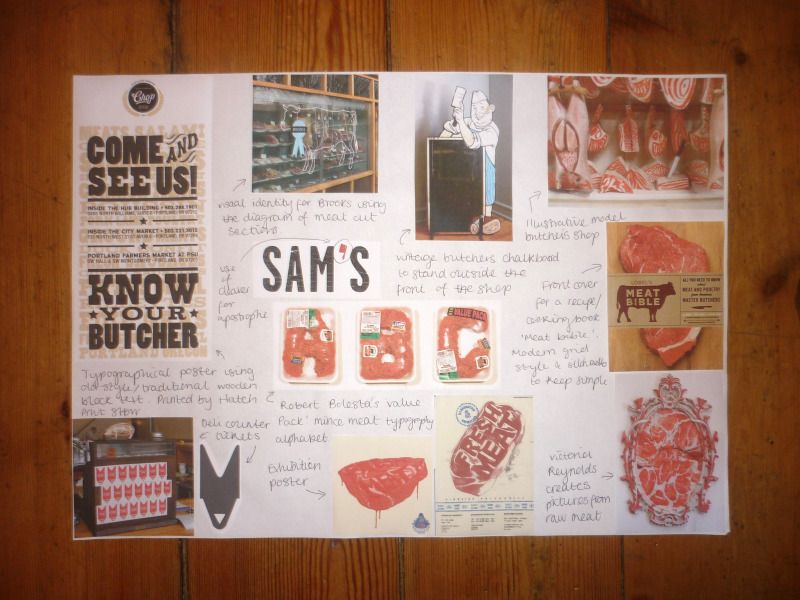 Chop
COME AND
SEE US!
INSIDE THE HUB BUILDING • 503.288.1901
INSIDE THE CITY MARKET • 503.221.3012
PORTLAND FARMERS MARKET AT PSU
SW HALL & SW MONTGOMERY • PORTLAND, OR
KNOW
YOUR
BUTCHER
PORTLAND OREGON
Typographical poster using
old style/traditional wooden
block text. Printed by Hatch
Print Show
visual identity for Brooks using
the diagram of meat cut
sections
use
of
cleaver
for
apostrophe
SAM'S
vintage butchers chalkboard
to stand outside the
front of the shop
Illustrative model
butchers shop
Front cover
for a recipe/
cooking book
'Meat bible'.
Modern grid
style &
to keep simple
MEAT
BIBLE
ALL YOU NEED TO KNOW
MEAT AND POULTRY
MASTER BUTCHERS
VALUE PACK
A B C
Robert Bolesta's value
Pack' mince meat typography
alphabet
Deli counter
tickets
Exhibition
poster
FRESH
MEAT
Victoria
Reynolds
creates
pictures from
raw meat